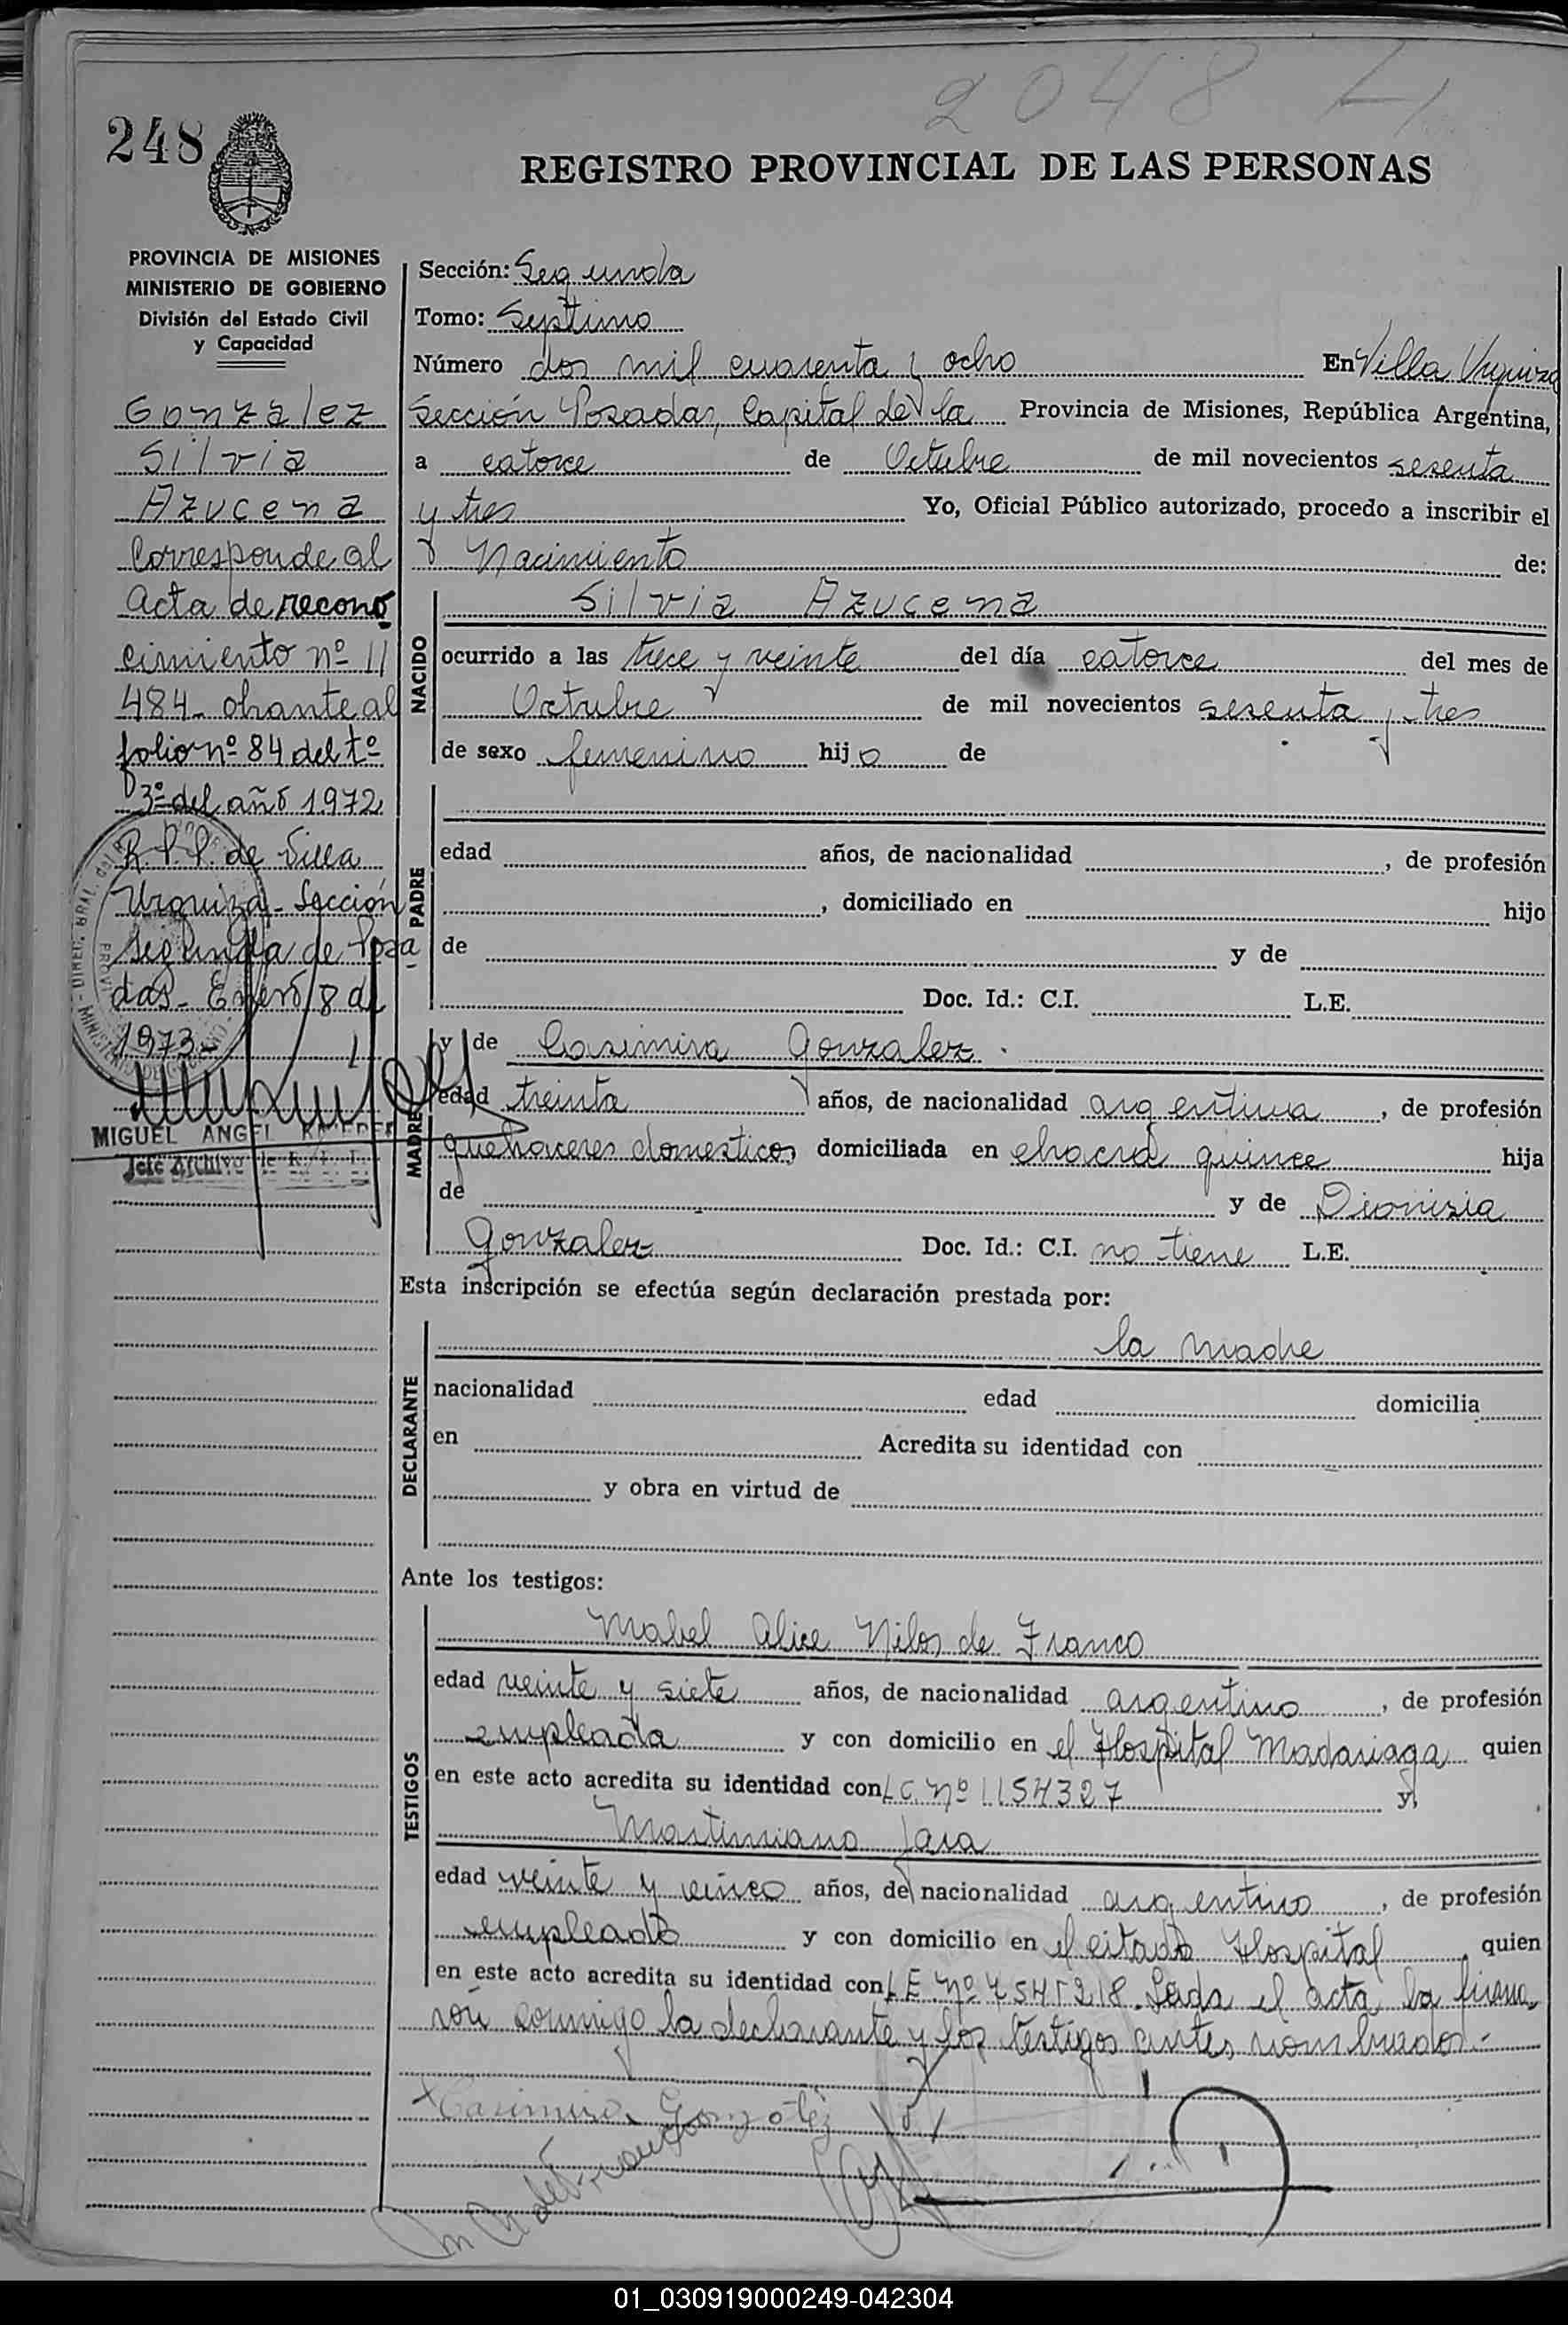 2048
248
REGISTRO PROVINCIAL DE LAS PERSONAS
PROVINCIA DE MISIONES
MINISTERIO DE GOBIERNO
División del Estado Civil
y Capacidad
Gonzalez
Silvia
Azucena
Corresponde al
acta de recono
cimiento nº 11
484 - obrante al
folio nº 84 del tº
3º del año 1972
R.P.P. de Villa
Urquiza - Sección
Segunda de Posa
das - Enero 8 de
1973 -
MIGUEL ANGEL
Jefe Archivo de R. P. P.
Sección: Segunda
Tomo: Septimo
Número dos mil cuarenta y ocho En Villa Urquiza
Sección Posadas, Capital de la Provincia de Misiones, República Argentina,
a catorce de Octubre de mil novecientos sesenta
y tres Yo, Oficial Público autorizado, procedo a inscribir el
Nacimiento de:
NACIDO
Silvia Azucena
ocurrido a las trece y veinte del día catorce del mes de
Octubre de mil novecientos sesenta y tres
de sexo femenino hija de
PADRE
edad años, de nacionalidad , de profesión
, domiciliado en hijo
de y de
Doc. Id.: C.I. L.E.
MADRE
y de Casimira Gonzalez
edad treinta años, de nacionalidad argentina , de profesión
quehaceres domesticos domiciliada en chacra quince hija
de y de Dionisia
Gonzalez Doc. Id.: C.I. no tiene L.E.
Esta inscripción se efectúa según declaración prestada por:
DECLARANTE
la madre
nacionalidad edad domicilia
en Acredita su identidad con
y obra en virtud de
Ante los testigos:
TESTIGOS
Mabel Alice Nilos de Franco
edad veinte y siete años, de nacionalidad argentino , de profesión
empleada y con domicilio en el Hospital Madariaga quien
en este acto acredita su identidad con L C. Nº 1154327 y
Martimiano Jara
edad veinte y cinco años, de nacionalidad argentino , de profesión
empleado y con domicilio en el citado Hospital , quien
en este acto acredita su identidad con L E. Nº 7545218. Leida el acta la firma
ron conmigo la declarante y los testigos antes nombrados.-
Casimira Gonzalez
de Franco
01_030919000249-042304